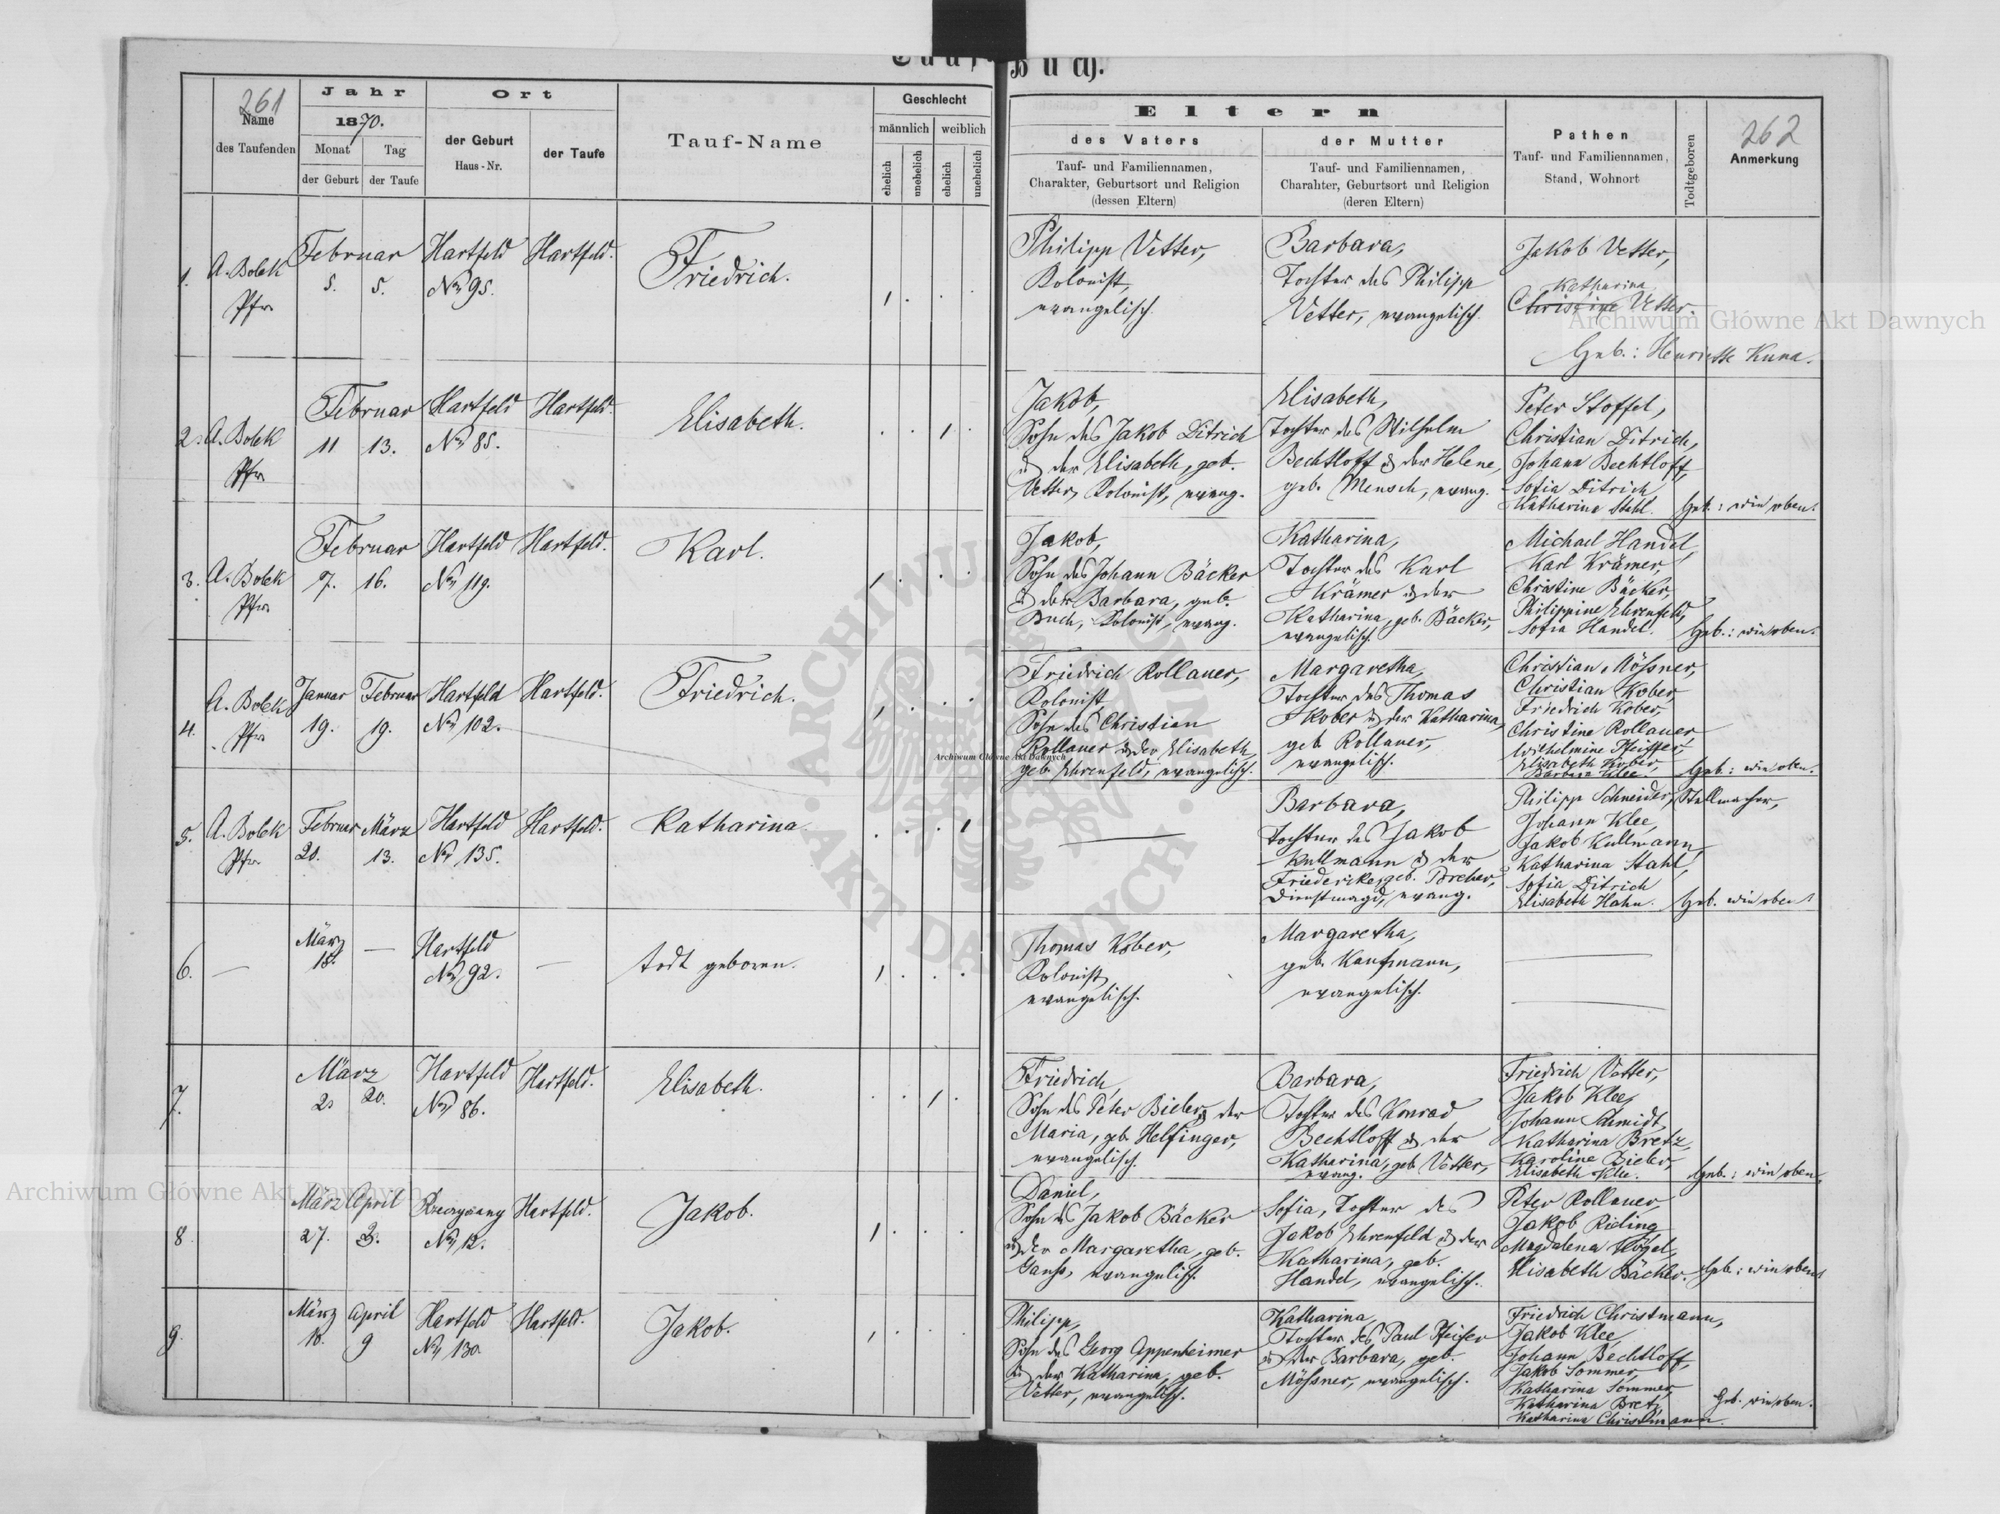 Tauf-Buch.
261
Name
des Taufenden
Jahr
1870.
Monat
Tag
der Geburt
der Taufe
Ort
der Geburt
Haus-Nr.
der Taufe
Tauf-Name
Geschlecht
männlich
weiblich
ehelich
unehelich
ehelich
unehelich
Eltern
des Vaters
Tauf- und Familiennamen,
Charakter, Geburtsort und Religion
(dessen Eltern)
der Mutter
Tauf- und Familiennamen,
Charahter, Geburtsort und Religion
(deren Eltern)
Pathen
Tauf- und Familiennamen,
Stand, Wohnort
Todtgeboren
262
Anmerkung
1.
A. Bolek
Pfr.
Februar
5.
5.
Hartfeld
Nr 95.
Hartfeld.
Friedrich.
Philipp Vetter,
Kolonist,
evangelisch.
Barbara,
Tochter des Philipp
Vetter, evangelisch.
Jakob Vetter,
Katharina
Christine Vetter.
Geb.: Henriette Kuna.
2.
A. Bolek
Pfr.
Februar
11
13.
Hartfeld
Nr 85.
Hartfeld.
Elisabeth.
Jakob,
Sohn des Jakob Ditrich
u. der Elisabeth, geb.
Vetter, Kolonist, evang.
Elisabeth,
Tochter des Wilhelm
Bechtloff u. der Helene,
geb. Mensch, evang.
Peter Stoffel,
Christian Ditrich,
Johann Bechtloff,
Sofia Ditrich
Katharina Stahl.
Geb.: wie oben.
3.
A. Bolek
Pfr.
Februar
7.
16.
Hartfeld
Nr 119.
Hartfeld.
Karl.
Jakob,
Sohn des Johann Bäcker
u. der Barbara, geb.
Buch, Kolonist, evang.
Katharina,
Tochter des Karl
Krämer u. der
Katharina, geb. Bäcker,
evangelisch.
Michael Handel,
Karl Krämer,
Christine Bäcker,
Philippine Ehrenfeld,
Sofia Handel.
Geb.: wie oben.
4.
A. Bolek
Pfr.
Januar
19.
Februar
19.
Hartfeld
Nr 102.
Hartfeld.
Friedrich.
Friedrich Rollauer,
Kolonist,
Sohn des Christian
Rollauer u. der Elisabeth,
geb. Ehrenfeld, evangelisch.
Margaretha,
Tochter des Thomas
Kober u. der Katharina,
geb. Rollauer,
evangelisch.
Christian Mößner,
Christian Kober,
Friedrich Kober,
Christine Rollauer,
Wilhelmine Pfeiffer,
Elisabeth Kober,
Barbara Klee.
Geb.: wie oben.
5.
A. Bolek
Pfr.
Februar
21.
März
13.
Hartfeld
Nr 135.
Hartfeld.
Katharina.
Barbara,
Tochter des Jakob
Kullmann u. der
Friedericke, geb. Brecher,
Dienstmagd, evang.
Philipp Schneider, Stellmacher,
Johann Klee,
Jakob Kullmann,
Katharina Stahl,
Sofia Ditrich
Elisabeth Hahn.
Geb. wie oben.
6.
März
18.
Hartfeld
Nr 92.
todt geboren.
Thomas Kober,
Kolonist,
evangelisch.
Margaretha,
geb. Kaufmann,
evangelisch.
7.
März
20.
Hartfeld
Nr 86.
Hartfeld.
Elisabeth.
Friedrich,
Sohn des Peter Bieler u. der
Maria, geb. Helfinger,
evangelisch.
Barbara,
Tochter des Konrad
Bechtloff u. der
Katharina, geb. Vetter,
evang.
Friedrich Vetter,
Jakob Klee,
Johann Schmidt,
Katharina Bretz,
Karoline Bieler,
Elisabeth Klee.
Geb.: wie oben.
8
März
27.
April
3.
Nr 12.
Hartfeld.
Jakob.
Daniel,
Sohn des Jakob Bäcker
u. der Margaretha, geb.
Ganß, evangelisch.
Sofia, Tochter des
Jakob Ehrenfeld u. der
Katharina, geb.
Handel, evangelisch.
Peter Rollauer,
Jakob Rieling
Magdalena Kögel,
Elisabeth Bäcker.
Geb.: wie oben.
9.
März
April
9
Hartfeld
Nr 130.
Hartfeld.
Jakob.
Philipp,
Sohn des Georg Appenheimer
u. der Katharina, geb.
Vetter, evangelisch.
Katharina
Tochter des Paul Pfeifer
u. der Barbara, geb.
Mößner, evangelisch.
Friedrich Christmann,
Jakob Klee,
Johann Bechtloff,
Jakob Sommer,
Katharina Sommer,
Katharina Bretz,
Katharina Christmann.
Geb. wie oben.
Archiwum Główne Akt Dawnych
Archiwum Główne Akt Dawnych
Archiwum Główne Akt Dawnych
ARCHIWUM GŁÓWNE · AKT DAWNYCH ·